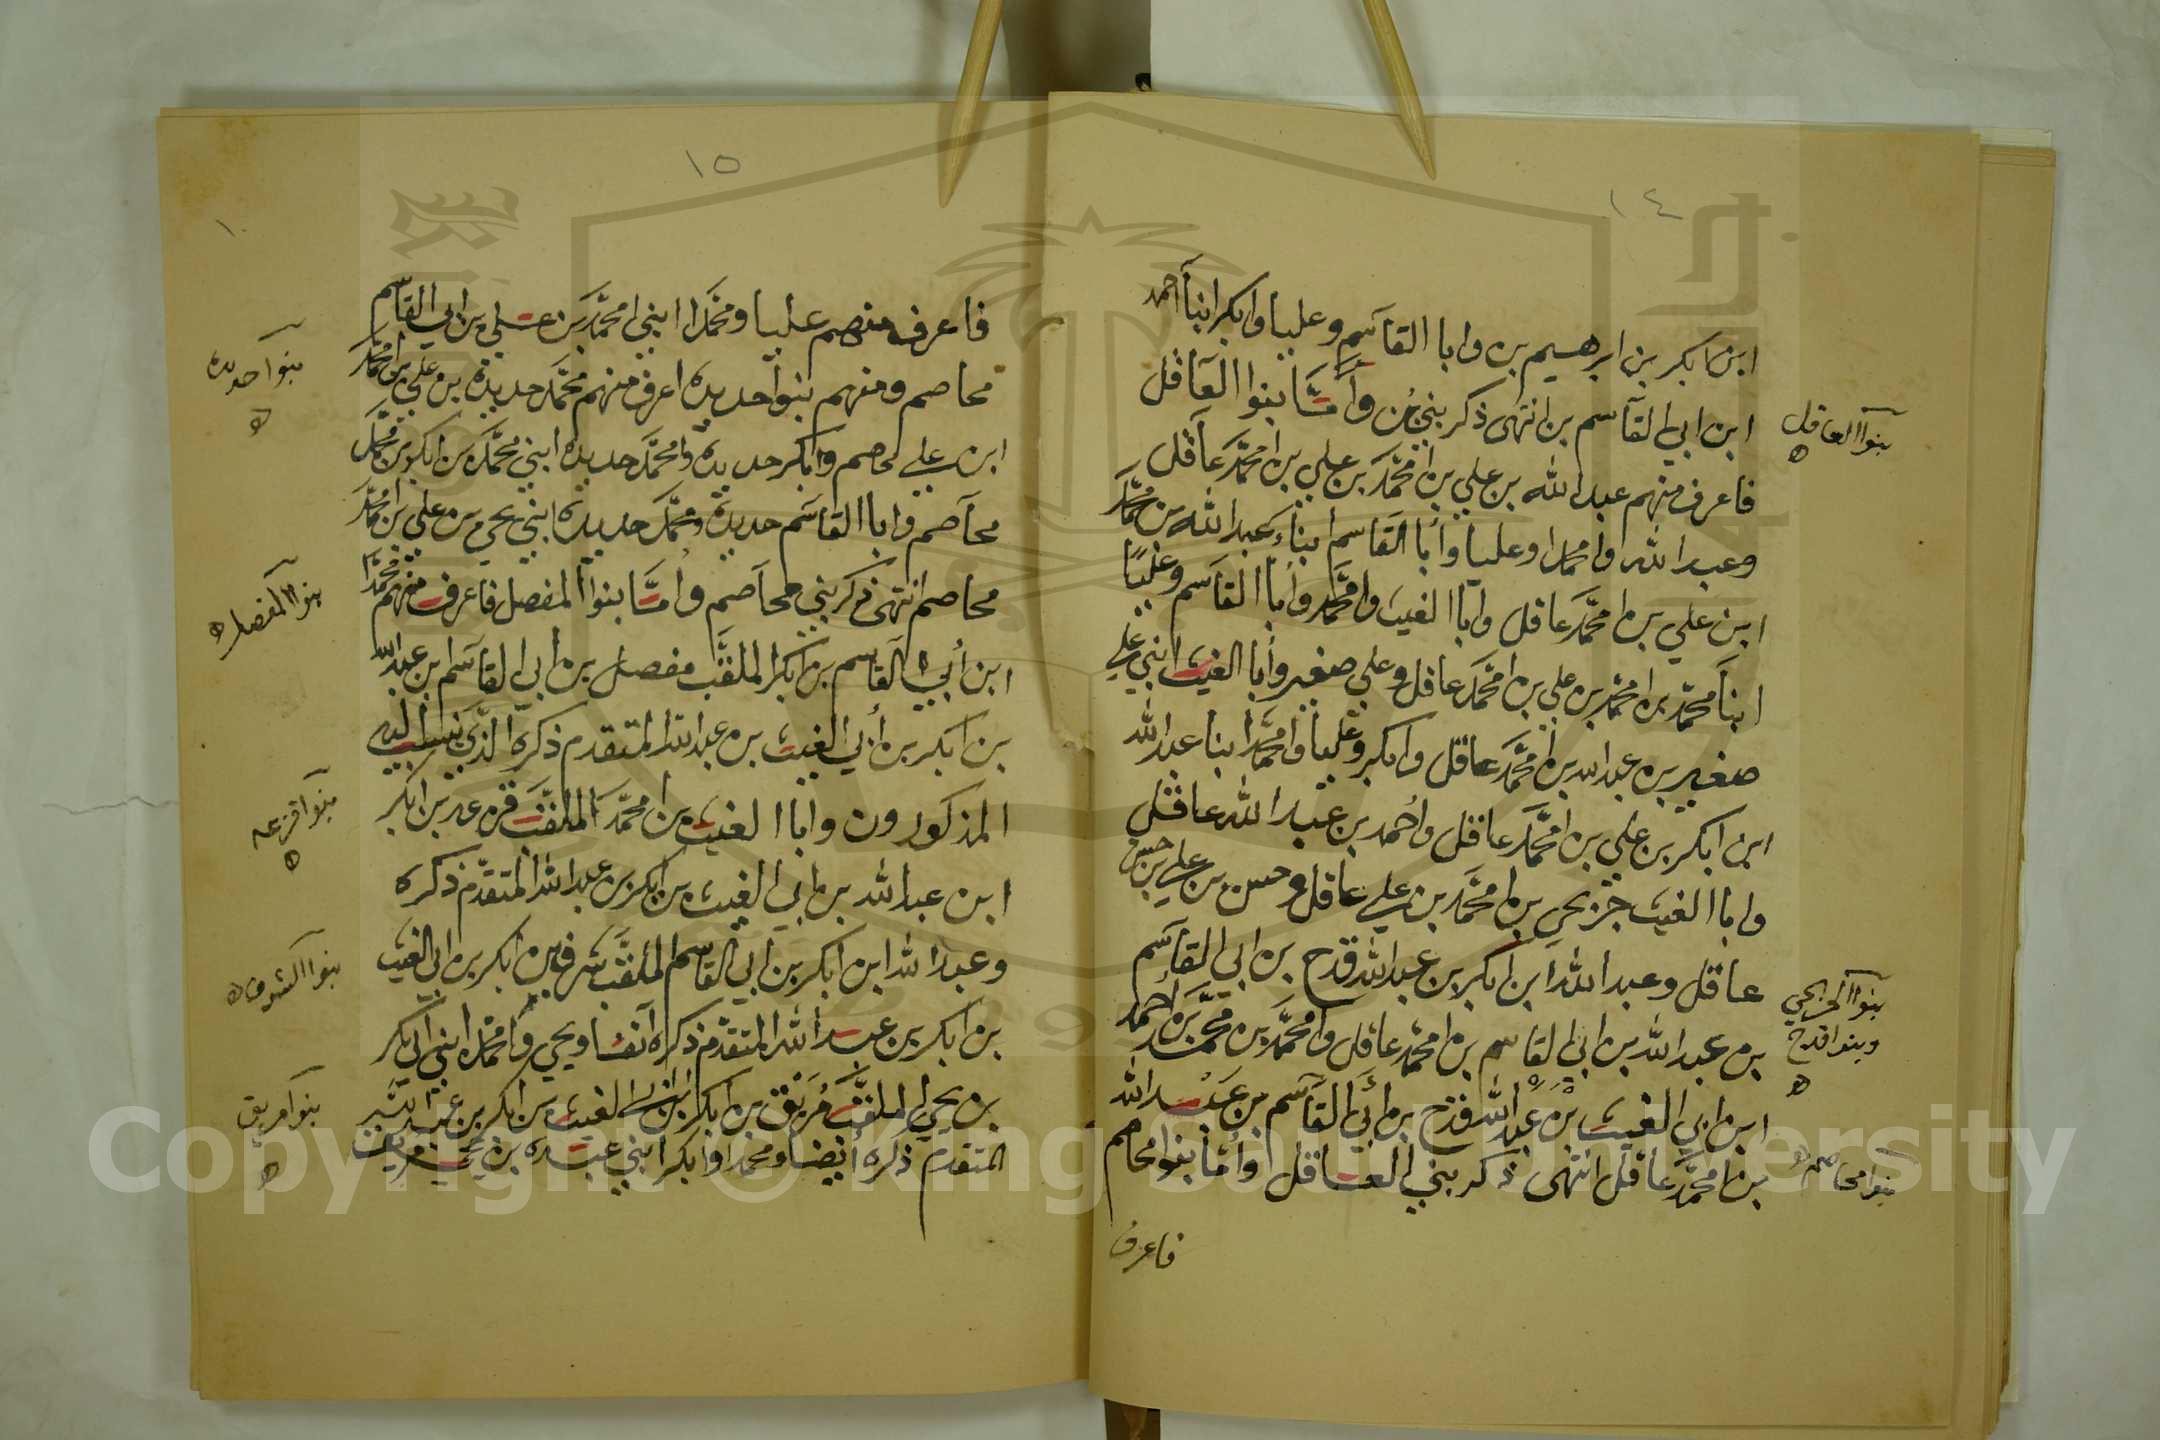 ١٤
ابن ابكر بن ابرهسيم بن وابا القاسم وعليا وابكر ابنا احمد
ابن ابي القاسم بن انتهى ذكر بني وأمّا بنوا العاقل
بنوا العاقل
فاعرف منهم عبد الله بن علي بن امحمّد بن علي بن امحمّد عاقل
وعبد الله وامحمدا وعليا وأبا القاسم ابناء عبد الله بن محمّد
ابن علي بن امحمّد عاقل وابا الغيث وامحمّد وأبا القاسم وعليًا
ابنا محمّد بن امحمّد بن علي بن امحمّد عاقل وعلي صغير وأبا الغيث ابني علي
صغير بن عبد الله بن امحمّد عاقل وابكر وعليا وامحمّدا ابنا عبد الله
ابن ابكر بن علي بن امحمّد عاقل واحمد بن عبد الله عاقل
وابا الغيث بن امحمّد بن علي عاقل وحسن بن علي بن حسن
عاقل وعبد الله ابن ابكر بن عبد الله قدح بن ابي القاسم
بن عبد الله بن ابي القاسم بن امحمّد عاقل وامحمّد بن محمّد بن احمد
وبنوا قدح
ابن ابي الغيث بن عبد الله قدح بن أبي القاسم بن عبد الله
بن امحمّد عاقل انتهى ذكر بني العاقل وأمّا بنوا محاصم
بنوا محاصم
فاعرف
١٥
١٠
فاعرف منهم عليا ومحمّدا ابني امحمّد بن علي بن ابي القاسم
محاصم ومنهم بنوا حديده اعرف منهم محمّد حديدة بن علي بن امحمّد
بنوا حديده
ابن علي محاصم وابكر حديده وامحمّد حديده ابني محمّد بن ابكر بن محمّد
محاصم وابا القاسم حديدة ومحمّد حديده ابني يحيى بن علي بن امحمّد
محاصم انتهى ذكر بني محاصم وأمّا بنوا المفصل فاعرف منهم محمّدا
بنوا المفصل
ابن أبي القاسم بن ابكر الملقّب مفصل بن أبي القاسم ابن عبد الله
بن ابكر بن أبي الغيث بن عبد الله المتقدم ذكره الذي ينسب اليه
المذكورون وابا الغيث بن امحمّد الملقّب قزعه بن ابكر
بنوا قزعه
ابن عبد الله بن ابي الغيث بن ابكر بن عبد الله المتقدّم ذكره
وعبد الله ابن ابكر بن ابي القاسم الملقّب بن ابكر بن ابي الغيث
بن ابكر بن عبد الله المتقدّم ذكره آنفا ويحيى وامحمّد ابني ابكر
بن يحيى الملقّب مُريْق بن ابكر بن ابي الغيث بن ابكر بن عبد الله
بنوا مريق
المتقدم ذكره أيضا ومحمدا وابكرا ابني عبده بن يحيى مريق
Copyright © King Saud University